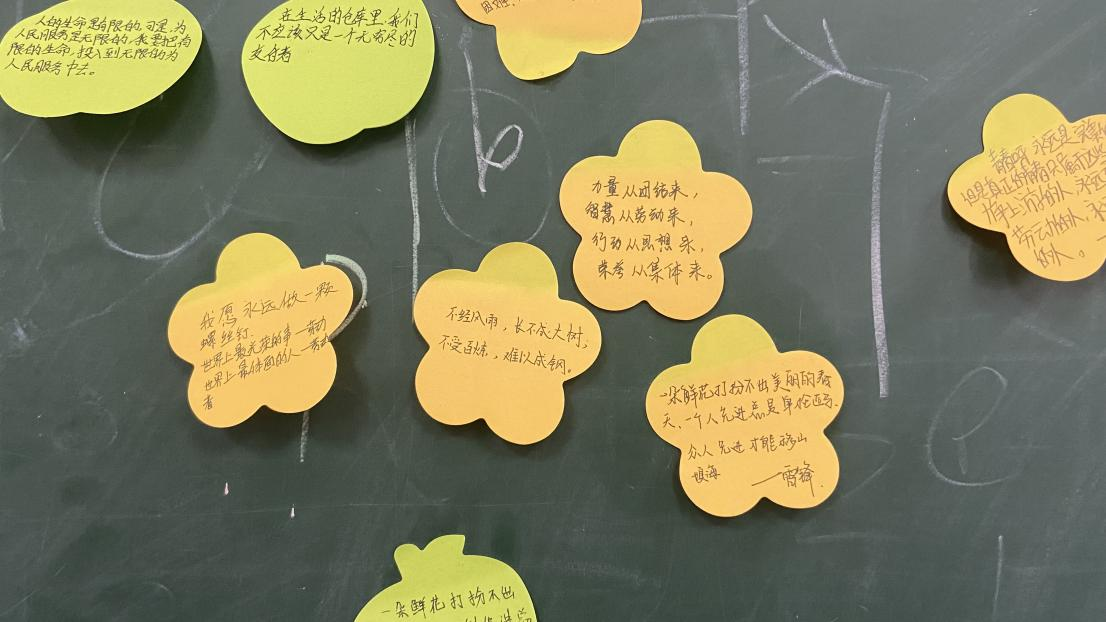 人的生命是有限的,可是,为
人民服务是无限的,我要把有
限的生命,投入到无限的为
人民服务中去。
在生活的仓库里,我们
不应该只是一个无穷尽的
支付者
力量从团结来,
智慧从劳动来,
行动从思想来,
荣誉从集体来。
青春啊,永远是完美的
但是真正的青春只属于这些
力争上流的人,永远
劳动的人,永
的人。
我愿永远做一颗
螺丝钉.
世界上最光荣的事—劳动
世界上最体面的人—劳动
者
不经风雨,长不成大树;
不受百炼,难以成钢。
一朵鲜花打扮不出美丽的春
天、一个人先进总是单枪匹马、
众人先进才能移山
填海
——雷锋.
一朵鲜花打扮不出
b